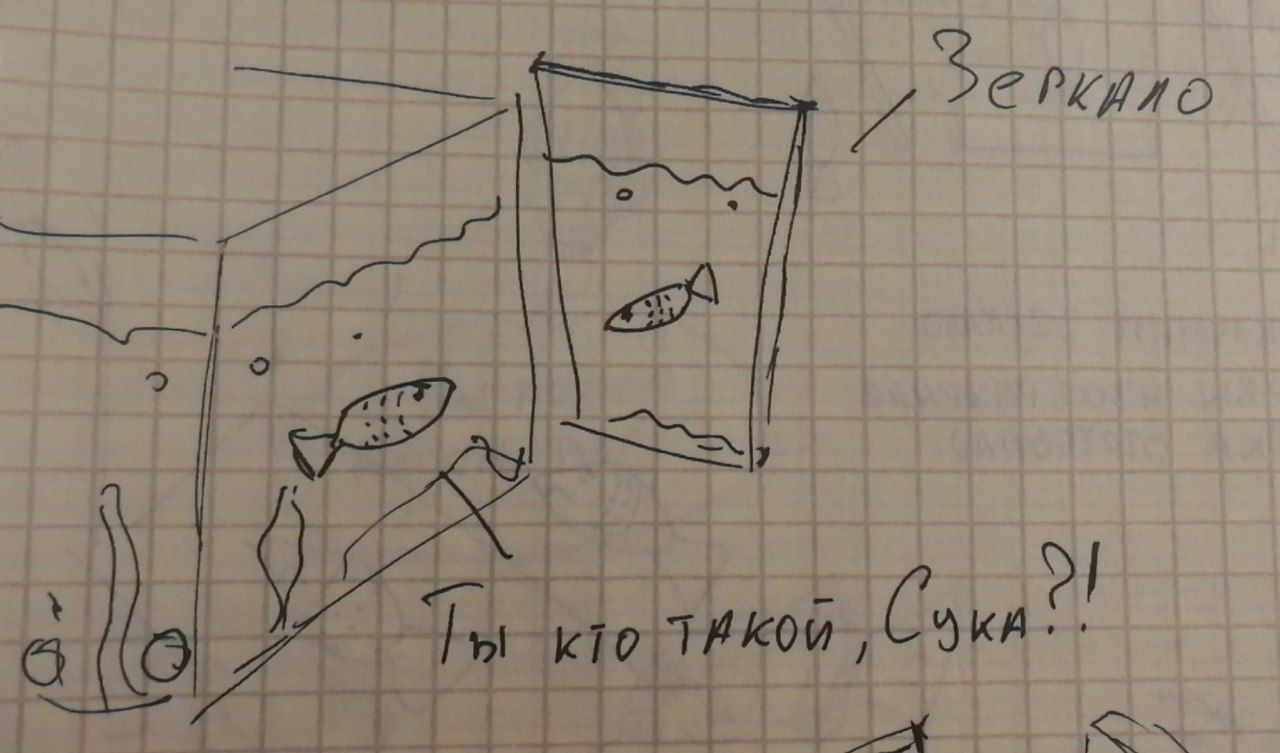 Зеркало
Ты кто такой, Сука?!